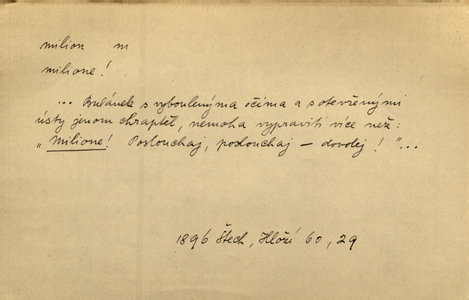 milion m
milione!
... Bulánek s vyboulenýma očima a s otevřenými
ústy jenom chraptěl, nemoha vypraviti více než:
„Milione! Poslouchaj, poslouchaj – dovolej!"...
1896 Štech, Hloží 60, 29